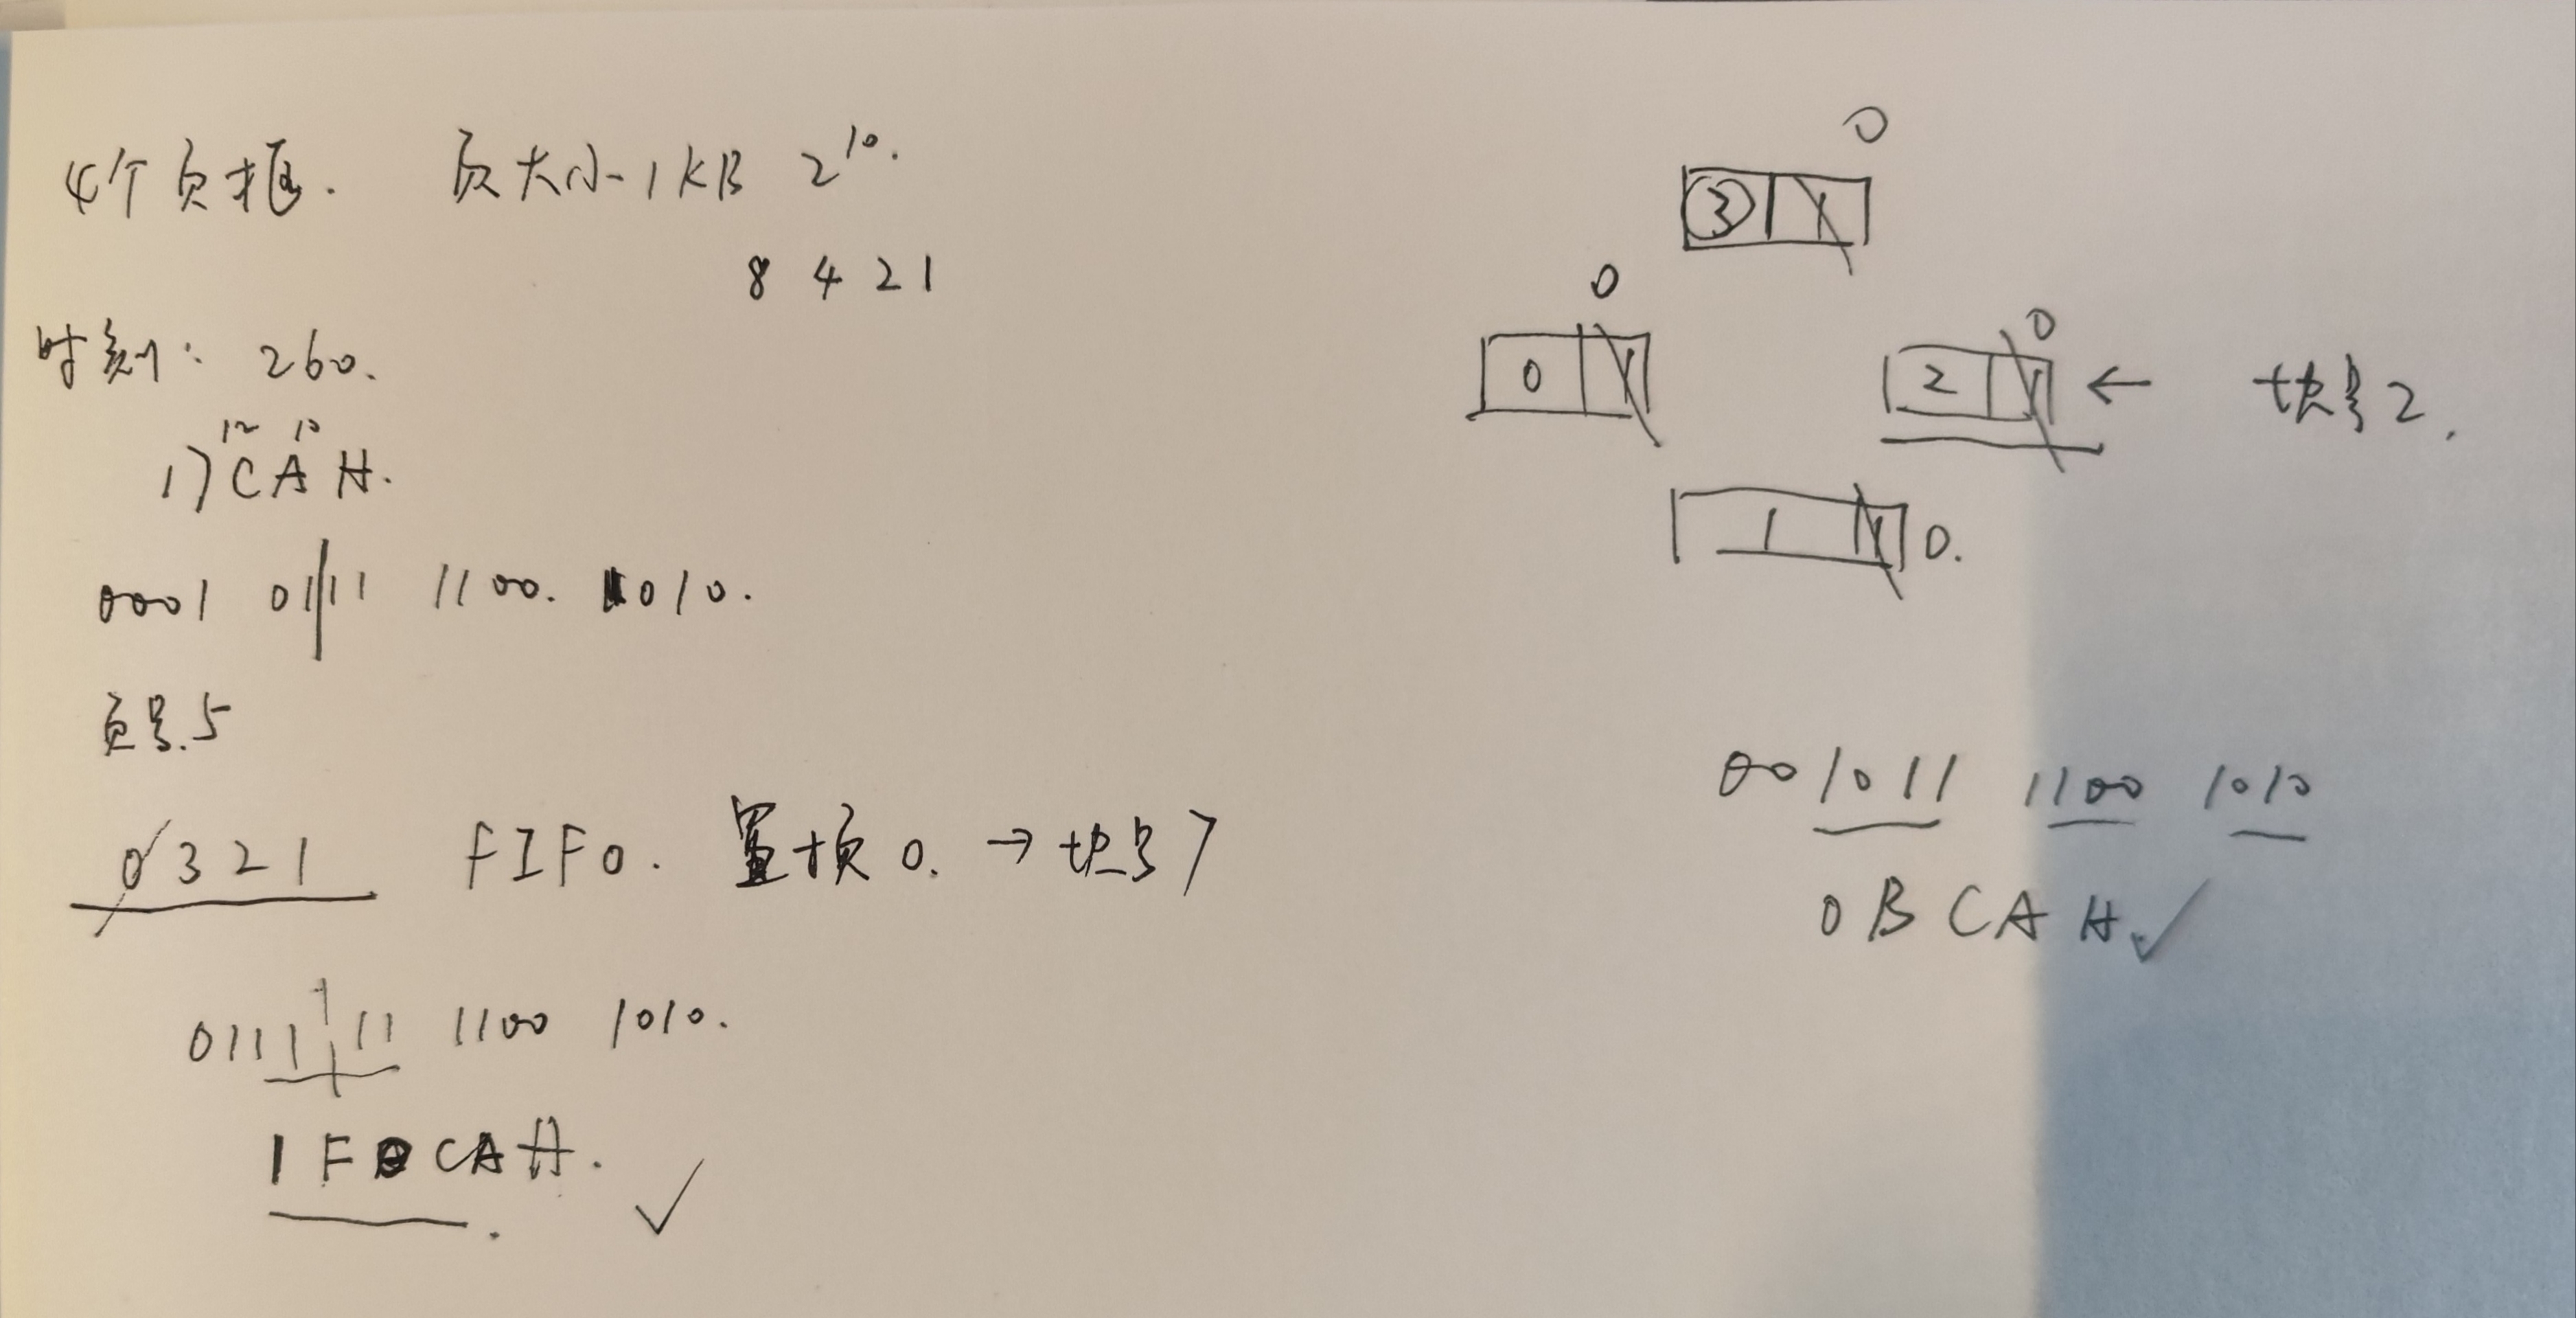 4个页框. 页大小1KB 2^10.
8 4 2 1
时刻: 260.
12 10
1)7CAH.
0001 01|11 1100. 1010.
页号.5
0 3 2 1 FIFO. 置换0. → 块号7
0111 11 1100 1010.
1F CAH. ✓
0
3 1
0
0 1
0
2 1 ← 块号2.
1 1 0.
001011 1100 1010
0BCAH ✓